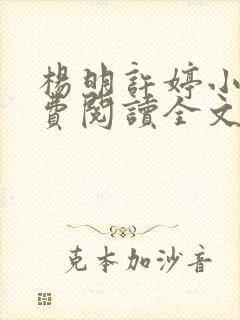 楊明許婷小
費閱讀全文
克本加沙音